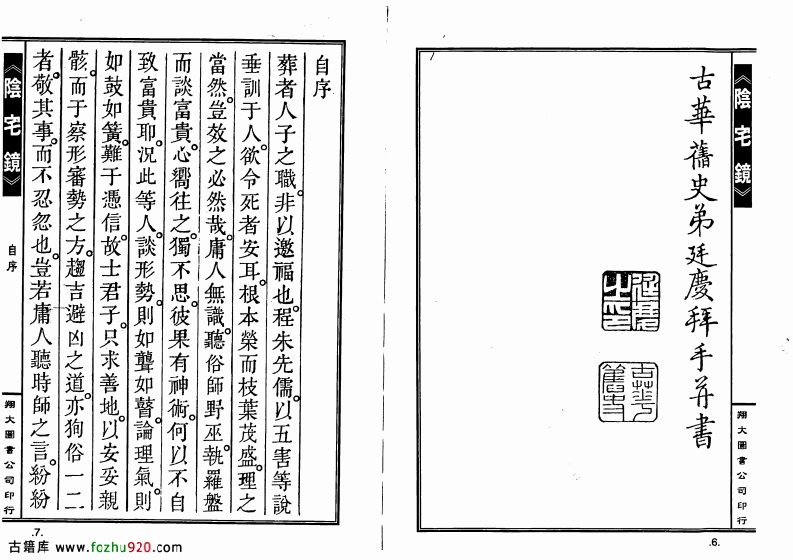 《陰宅鏡》
翔大圖書公司印行
古華舊史弟廷慶拜手并書
廷慶之印
古華舊史
.6.
自序
葬者人子之職。非以邀福也。程朱先儒。以五害等說
垂訓于人。欲令死者安耳。根本榮而枝葉茂盛。理之
當然。豈效之必然哉。庸人無識。聽俗師野巫。執羅盤
而談富貴。心嚮往之。獨不思。彼果有神術。何以不自
致富貴耶。況此等人。談形勢。則如聾如瞽。論理氣。則
如鼓如簧。難于憑信。故士君子。只求善地。以安妥親
骸。而于察形審勢之方。趨吉避凶之道。亦狥俗一二
者。敬其事。而不忍忽也。豈若庸人聽時師之言。紛紛
《陰宅鏡》
自序
翔大圖書公司印行
.7.
古籍库 www.fozhu920.com